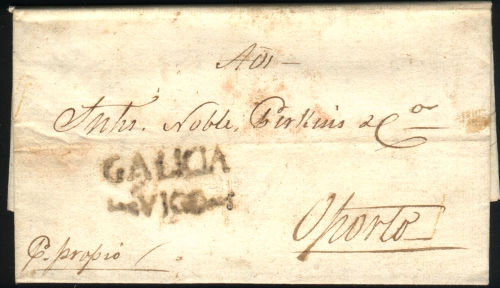 Aos
Snhrs. Noble, Perkins & Co
GALICIA
VIGO
Oporto
P. propio